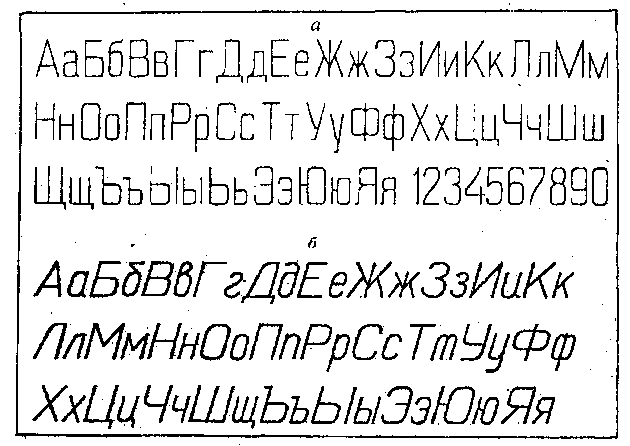 а
АаБбВвГгДдЕеЖжЗзИиКкЛлМм
НнОоПпРрСсТтУуФфХхЦцЧчШш
ЩщЪъЫыЬьЭэЮюЯя 1234567890
б
АаБбВвГгДдЕеЖжЗзИиКк
ЛлМмНнОоПпРрСсТтУуФф
ХхЦцЧчШщЪъЫыЭэЮюЯя